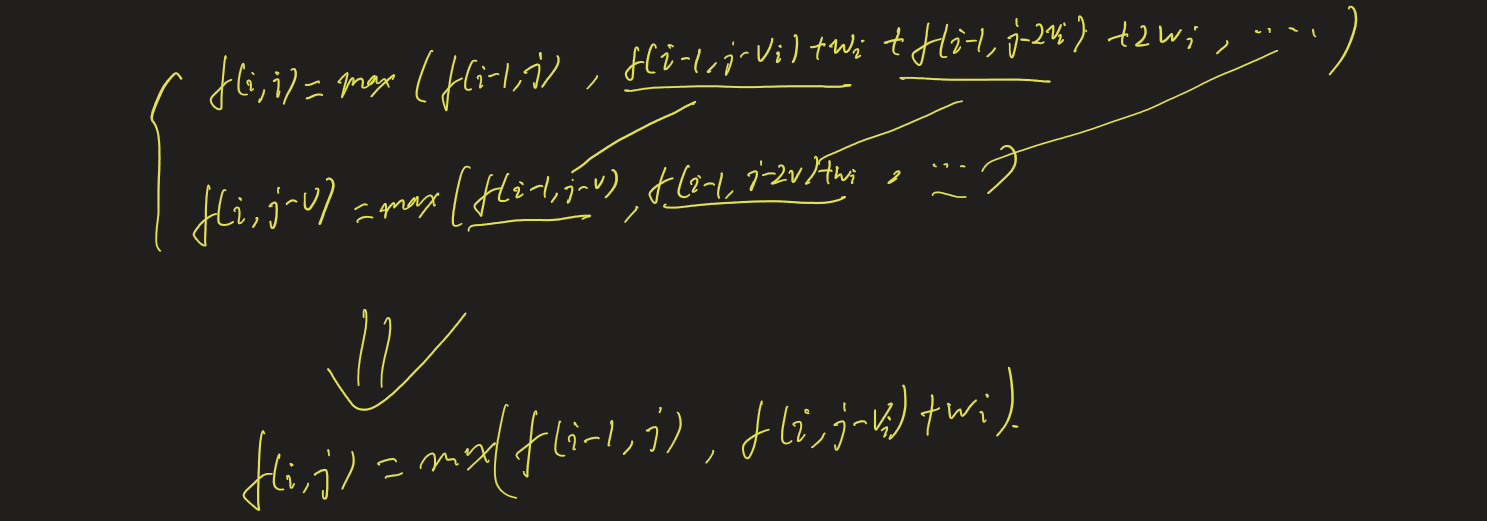 f(i,j) = max (f(i-1,j) , f(i-1,j-vᵢ)+wᵢ + f(i-1,j-2vᵢ) +2wᵢ , ·····)
f(i,j-v) = max (f(i-1,j-v) , f(i-1,j-2v)+wᵢ , ···)
f(i,j) = max(f(i-1,j) , f(i,j-vᵢ)+wᵢ).